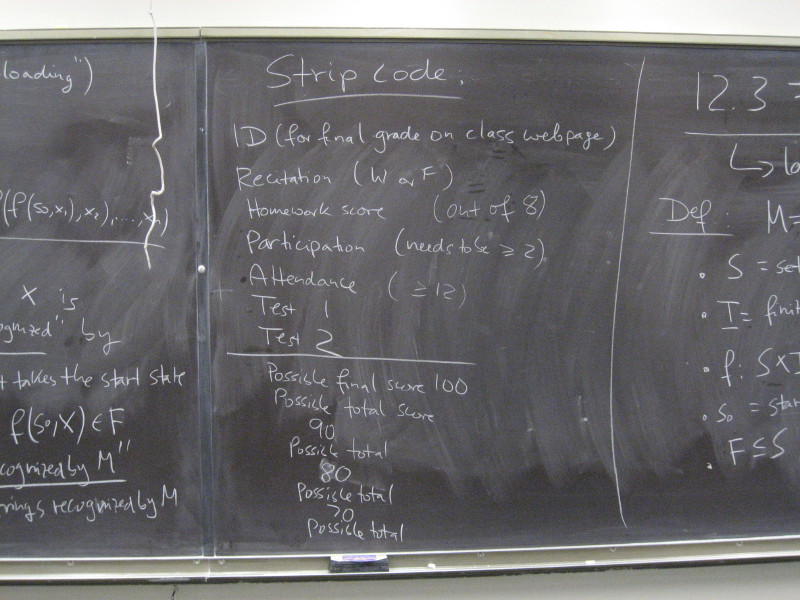 loading")
f(f(s₀,x₁),x₂),...,xₙ)
x is
ognized" by
t takes the start state
f(s₀,x) ∈ F
cognized by M"
rings recognized by M
Strip code:
ID (for final grade on class webpage)
Recitation (W or F)
Homework score (out of 8)
Participation (needs to be ≥ 2)
Attendance (≥12)
Test 1
Test 2
Possible final score 100
Possible total score
90
Possible total
80
Possible total
70
Possible total
12.3 =
↳ la
Def: M=
• S = set
• I = finit
• f: S×I
• s₀ = star
• F ⊆ S